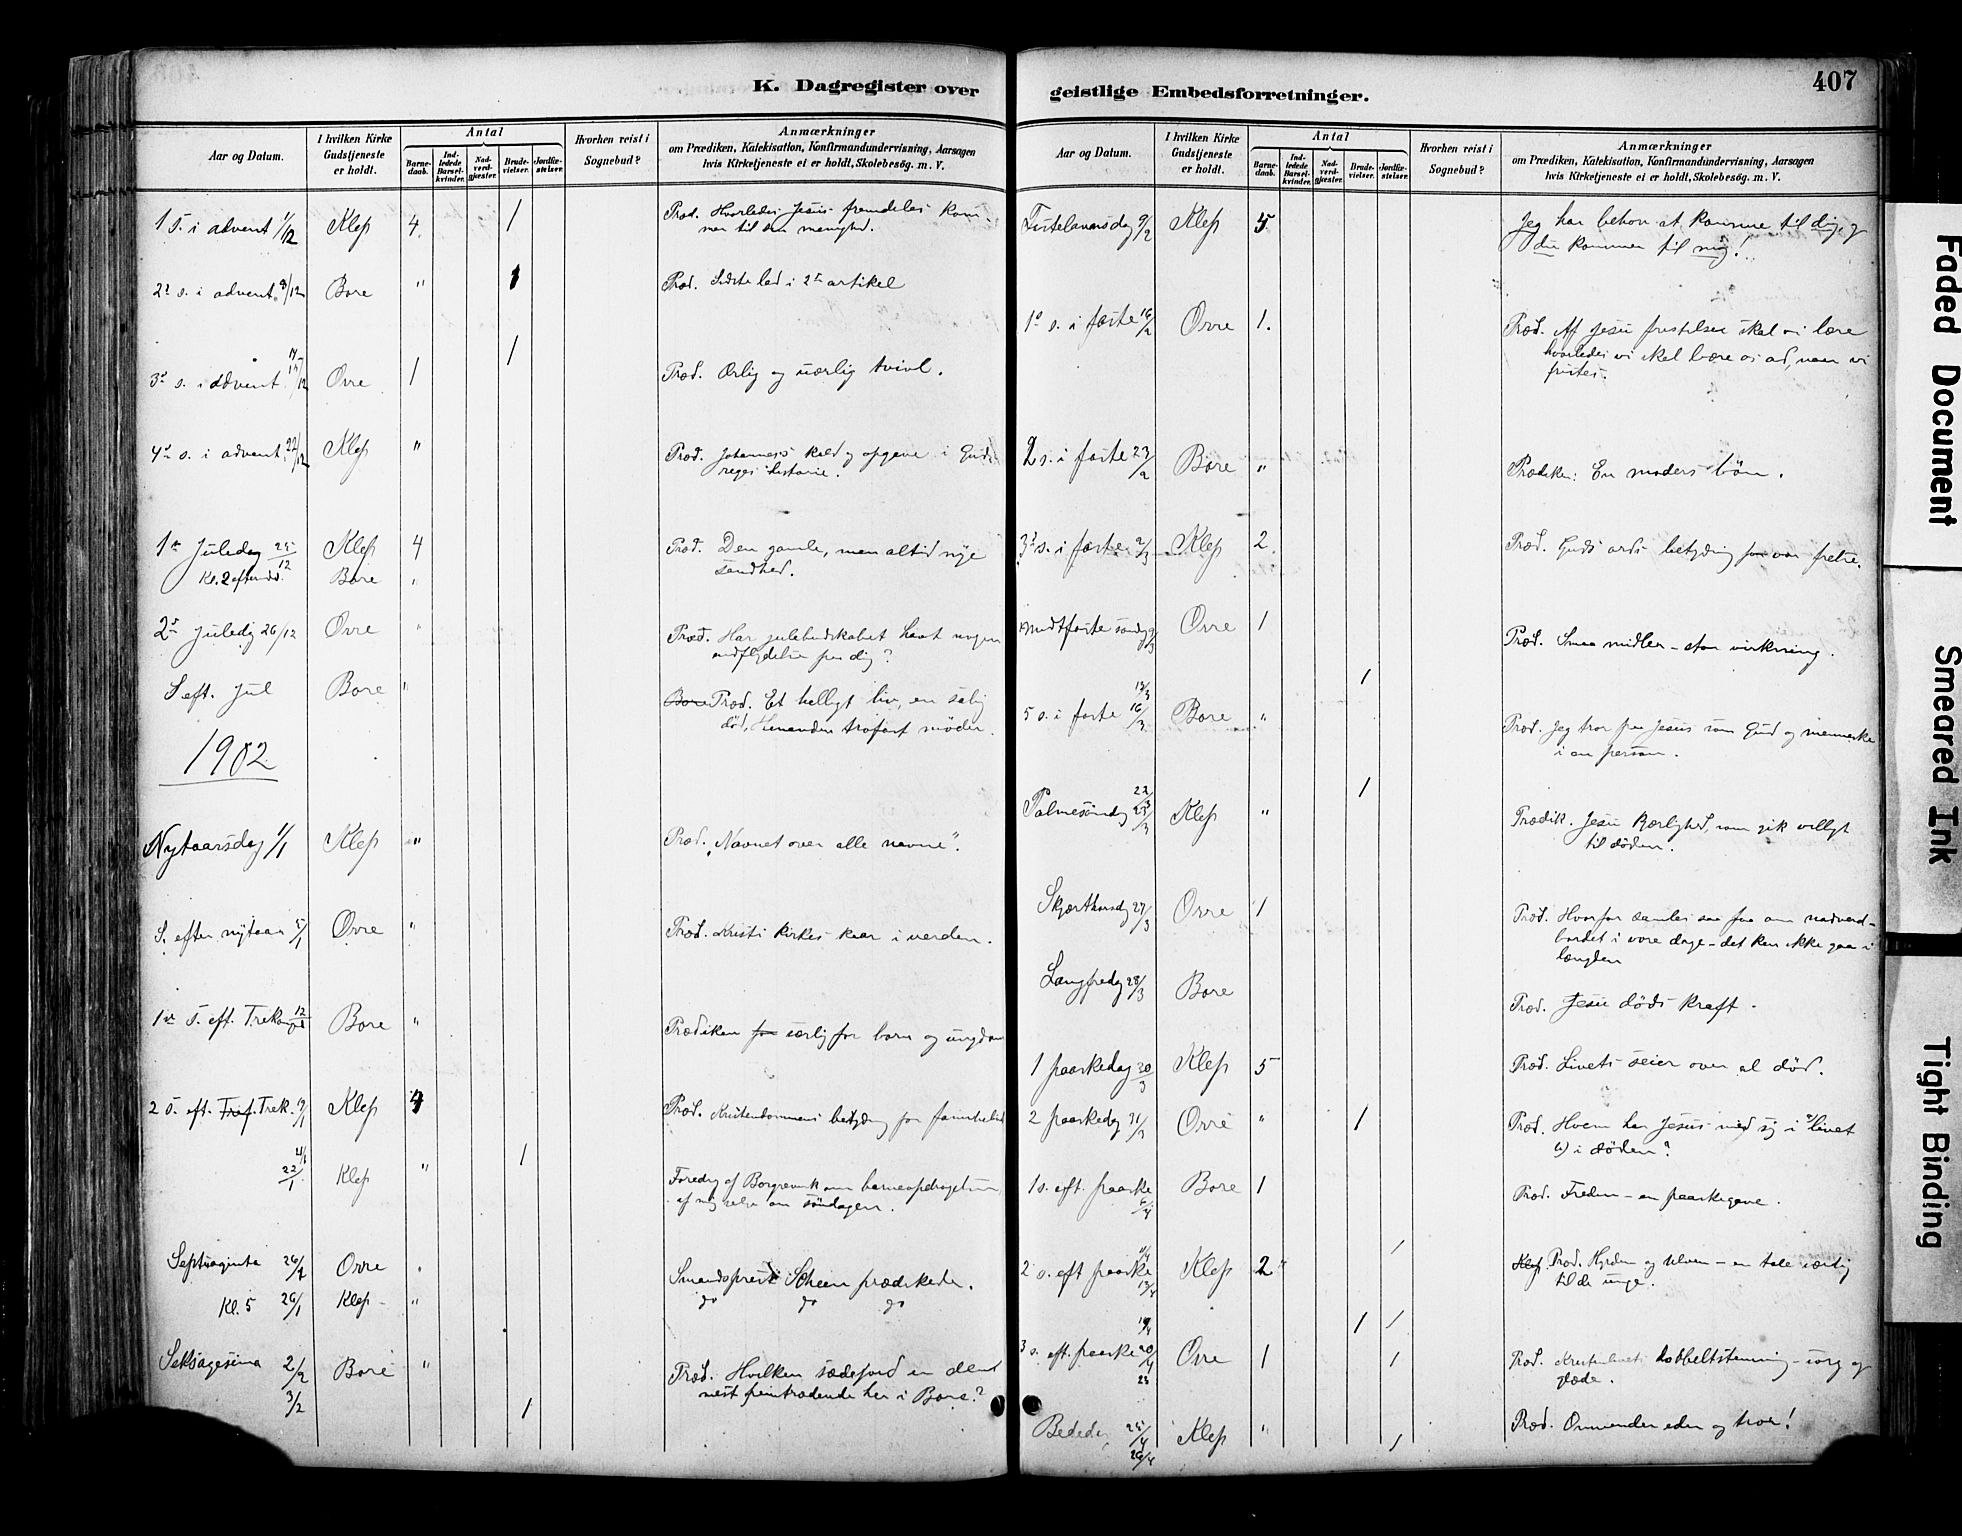 K. Dagregister over geistlige Embedsforretninger.
407
Aar og Datum.
I hvilken Kirke Gudstjeneste er holdt.
Antal
Barnedaab.
Indledede Barselkvinder.
Nadverdgjester.
Brudevielser.
Jordfæstelser.
Hvorhen reist i Sognebud?
Anmærkninger
om Prædiken, Katekisation, Konfirmandundervisning, Aarsagen
hvis Kirketjeneste ei er holdt, Skolebesög. m. V.
1 S. i advent 1/12 Klep 4 1 Præd. Hvorledes Jesus fremdeles kom-
mer til sin menighed.
2den s. i advent 8/12 Bore " 1 Præd. Sidste led i 2den artikel
3de s. i advent /12 Orre 1 1 Præd. Ærlig og uærlig tvivl.
4de s. i advent 22/12 Klep " Præd. Johannes's kald og opgave i Guds
riges historie.
1ste Juledag 25/12 Klep 4 Præd. Den gamle, men altid nye
sandhed.
Kl. 2 efterm. Bore "
2den Juledag 26/12 Orre " Præd. Har julebudskabet havt nogen
indflydelse paa dig?
S. eft. Jul Bore " Bore Præd. Et helligt liv, en salig
død, Simeon
1902
Nytaarsdag 1/1 Klep " Præd. "Navnet over alle navne".
S. efter nytaar 5/1 Orre " Præd. Kristi kirkes kaar i verden.
1ste S. eft. Trekonger 12/1 Bore " Prædiken for særlig for børn og ungdom
2 S. eft. Trek. 19/1 Klep 4 Præd. Kristendommens betydning for familielivet
1
22/1 Klep " Foredrag af Borgrevink om barneopdragelsen,
af mig selv om søndagen.
Septuaginta 26/1 Orre " Smandsprest Scheen prædikede.
Kl. 5 26/1 Klep " do do do
Seksagesima 2/2 Bore " Præd. Hvilken sædejord er den
mest fremtrædende her i Bore?
3/2 1
Aar og Datum.
I hvilken Kirke Gudstjeneste er holdt.
Antal
Barnedaab.
Indledede Barselkvinder.
Nadverdgjester.
Brudevielser.
Jordfæstelser.
Hvorhen reist i Sognebud?
Anmærkninger
om Prædiken, Katekisation, Konfirmandundervisning, Aarsagen
hvis Kirketjeneste ei er holdt, Skolebesög. m. V.
Fastelavnsdag 9/2 Klep 5 Jeg har behov at komme til dig, og
du kommer til mig!
1ste s. i faste 16/2 Orre 1. Præd. Af Jesu fristelser skal vi lære
hvorledes vi skal bære os ad, naar vi
fristes.
2 s. i faste 23/2 Bore " Prædiken: En moders bøn.
3de s. i faste 2/3 Klep 2. Præd. Guds ords betydning for vor frelse.
Midtfaste søndag 9/3 Orre 1 Præd. Smaa midler – stor virkning.
13/3 1
5 s. i faste 16/3 Bore " Præd. Jeg tror paa Jesus som Gud og menneske
i en person.
22/3 1
Palmesøndag 23/3 Klep " Prædik. Jesu kjærlighed, som gik villigt
til døden.
Skjærthorsdag 27/3 Orre 1 Præd. Hvorfor samles saa faa om nadverd-
bordet i vore dage – det kan ikke gaa i
længden
Langfredag 28/3 Bore Præd. Jesu døds kraft.
1 paaskedag 30/3 Klep 5 Præd. Livets seier over al død.
2 paaskedag 31/3 Orre " 1 Præd. Hvem har Jesus med sig i a) livet
b) i døden?
1 s. eft. paaske 6/4 Bore 1 Præd. Freden – en paaskegave.
11/4 1
2 s. eft paaske 13/4 Klep 2 Klep Præd. Hyrden og ulven – en tale særlig
til de unge.
19/4 1 1
3 s. eft. paaske 20/4 Orre 1 1 Præd. Kristenlivets dobbeltstemning – sorg og
glæde.
23
Bededag 25/4 Klep " Præd. Omvender eder og tror!
26/4 1
Faded Document
Smeared Ink
Tight Binding